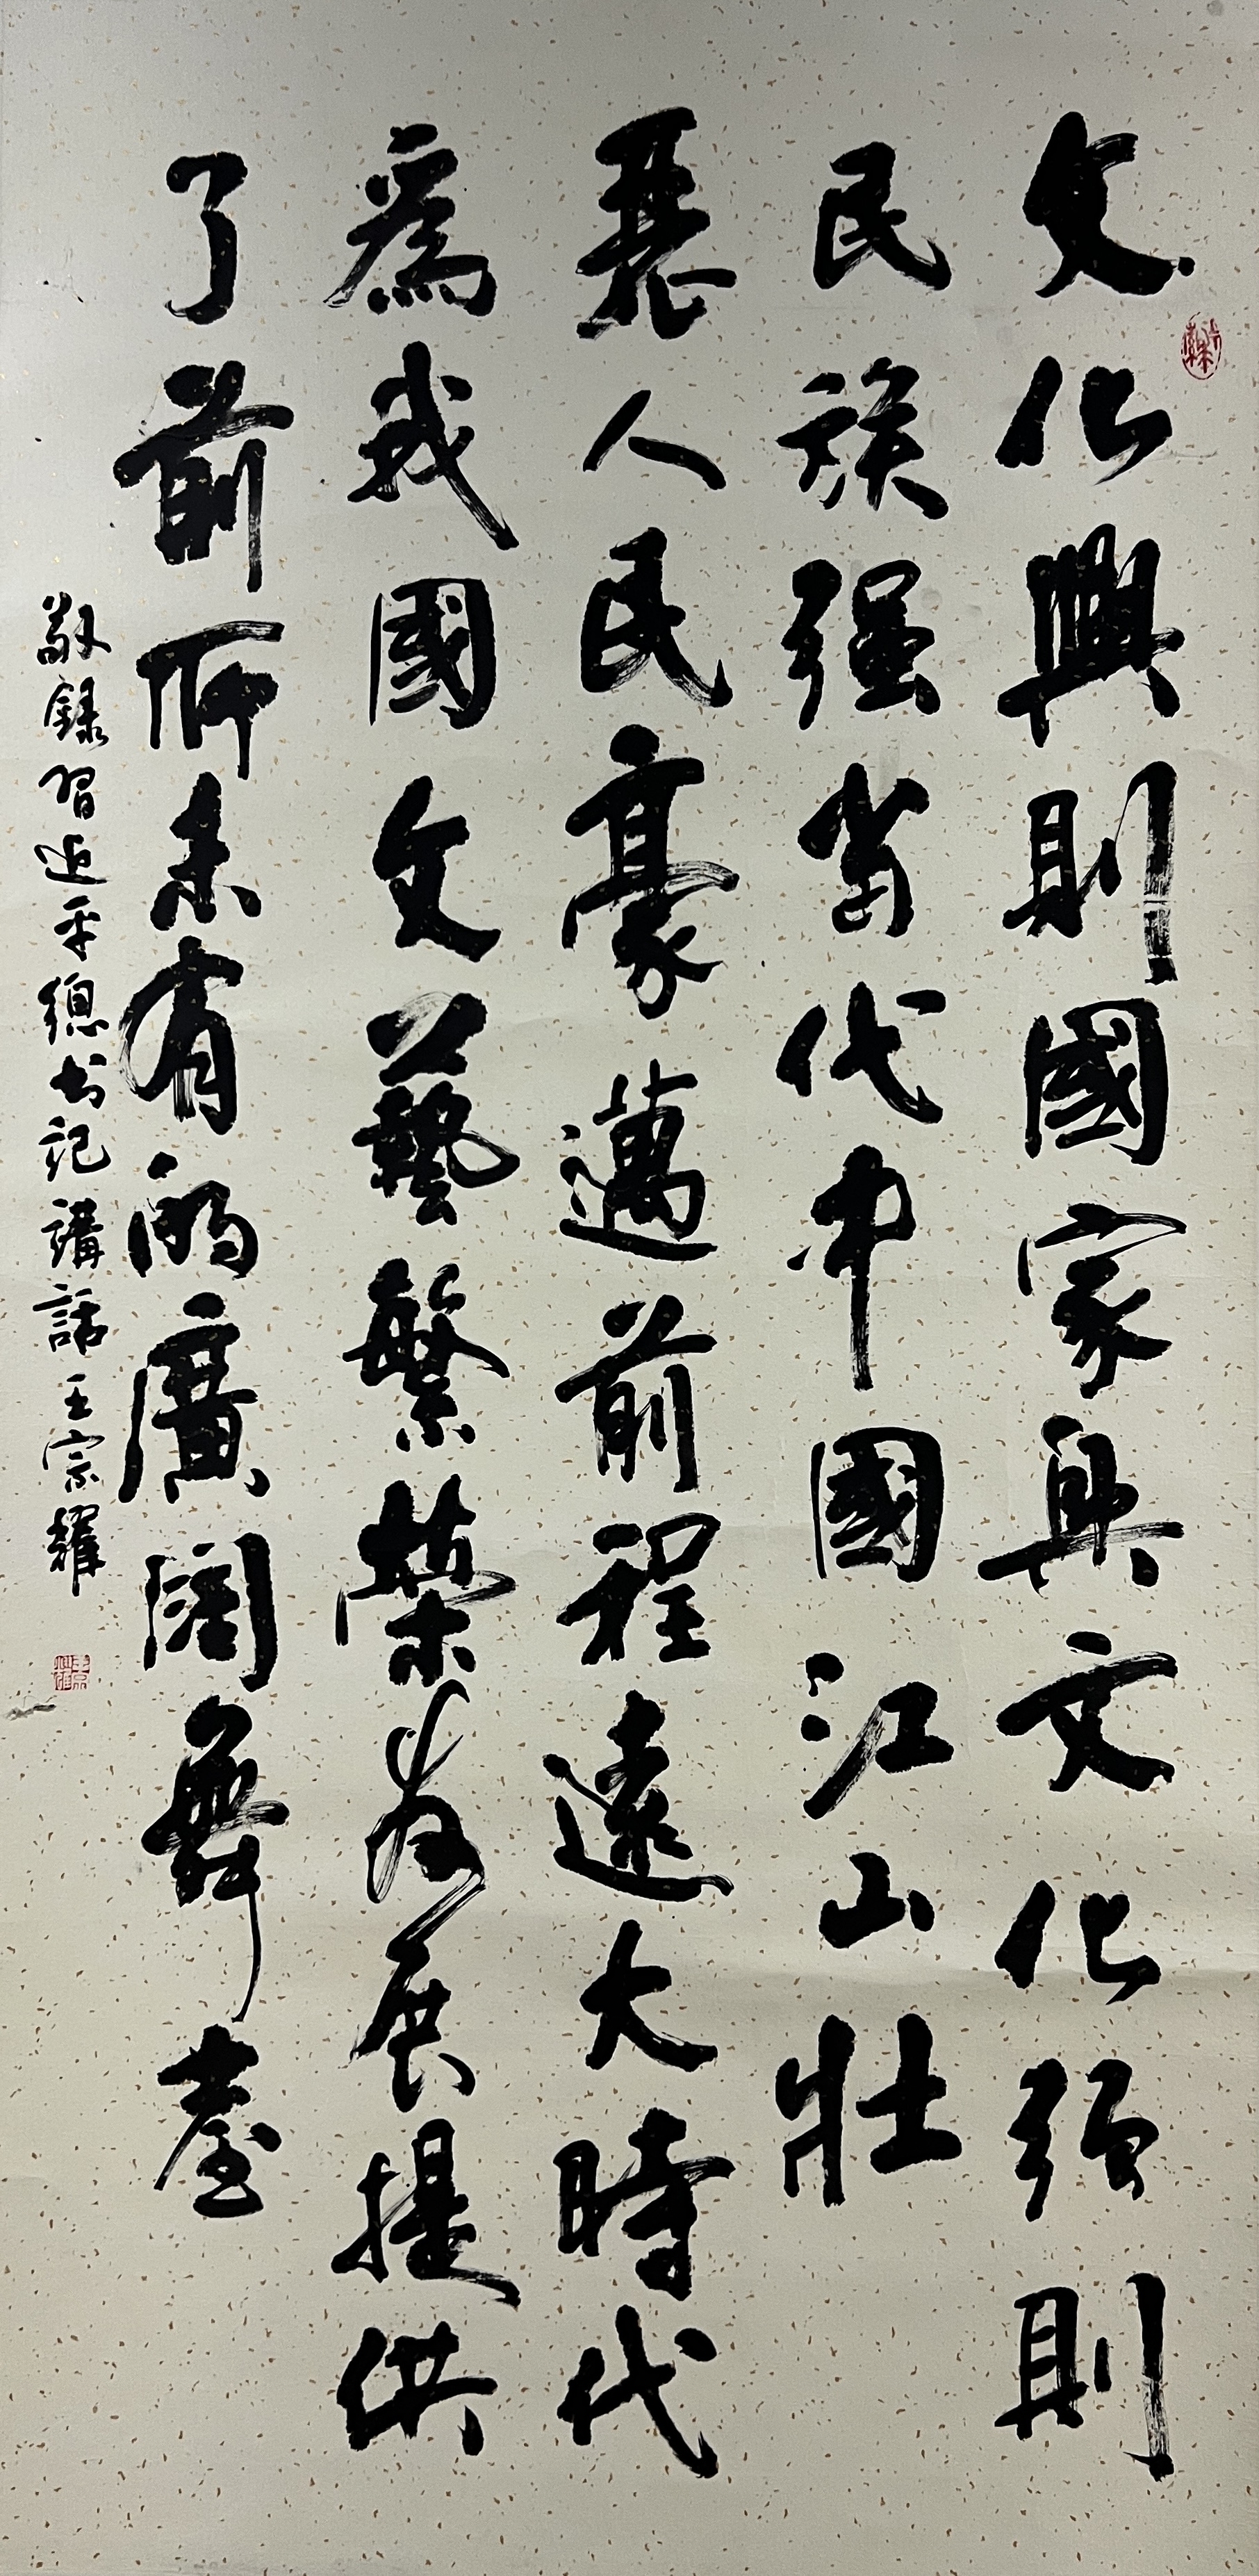 文化興則國家興文化强則
民族强當代中國江山壯
麗人民豪邁前程遠大時代
爲我國文藝繁榮發展提供
了前所未有的廣闊舞臺
敬録習近平總书記講話王宗耀